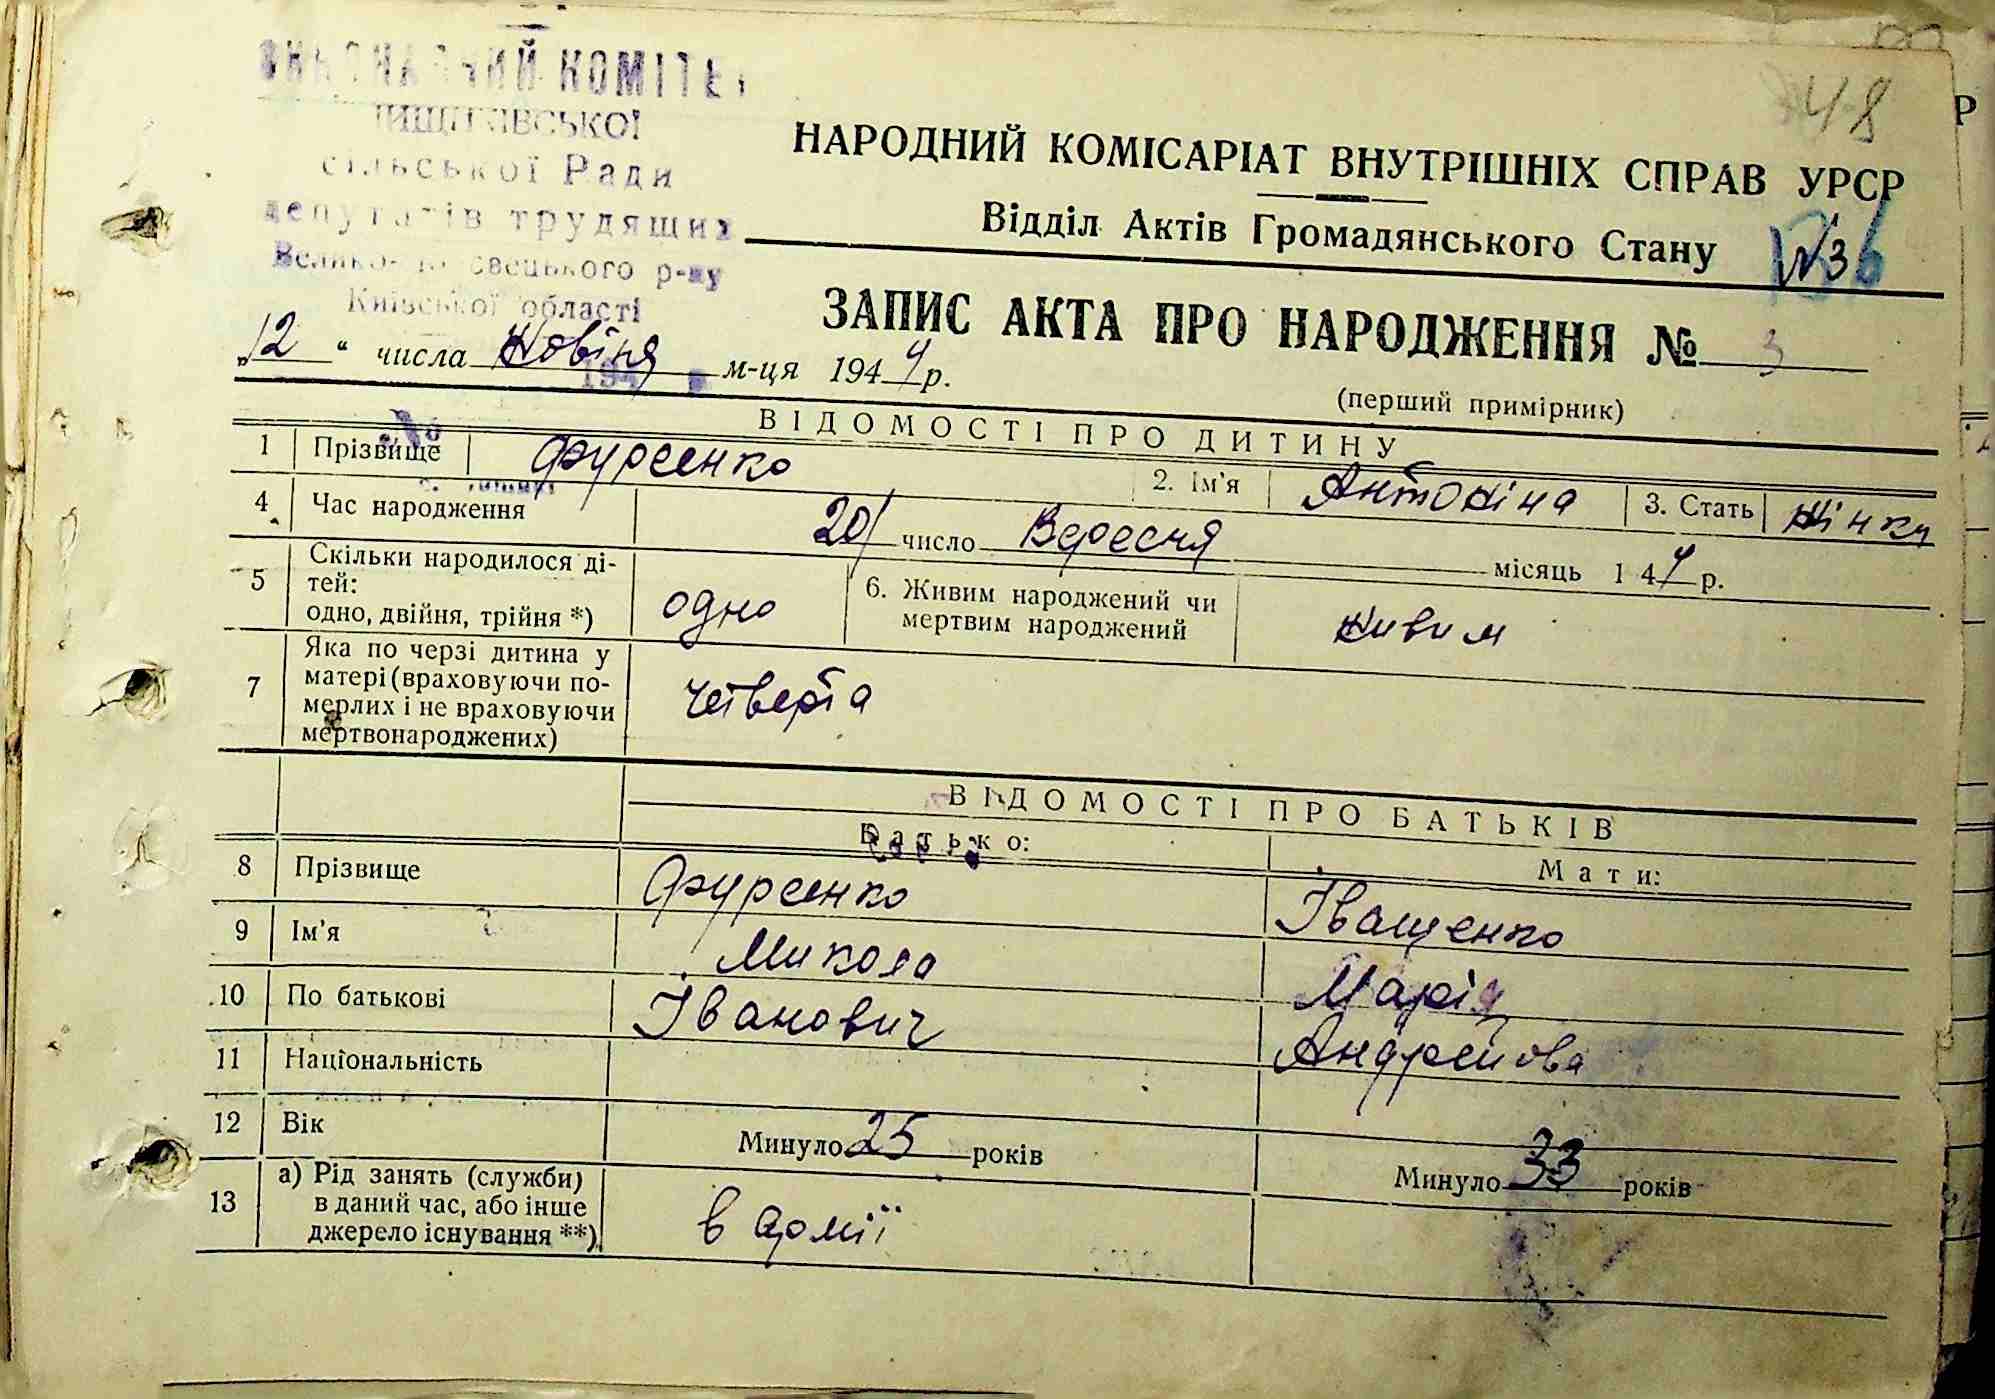 ВИКОНАВЧИЙ КОМІТЕТ
сільської Ради
депутатів трудящих
Київської області
48
НАРОДНИЙ КОМІСАРІАТ ВНУТРІШНІХ СПРАВ УРСР
Відділ Актів Громадянського Стану
№3
ЗАПИС АКТА ПРО НАРОДЖЕННЯ № 3
„12“ числа Жовтня м-ця 1944 р.
(перший примірник)
ВІДОМОСТІ ПРО ДИТИНУ
1 Прізвище Фурсенко 2. Ім'я Антоніна 3. Стать жінка
4 Час народження 20 число Вересня місяць 1 44 р.
5 Скільки народилося ді-
тей:
одно, двійня, трійня *) одно 6. Живим народжений чи
мертвим народжений живим
7 Яка по черзі дитина у
матері (враховуючи по-
мерлих і не враховуючи
мертвонароджених) четверта
ВІДОМОСТІ ПРО БАТЬКІВ
Батько: Мати:
8 Прізвище Фурсенко Іващенко
9 Ім'я Микола Марія
10 По батькові Іванович Андрейова
11 Національність
12 Вік Минуло 25 років Минуло 33 років
13 а) Рід занять (служби)
в даний час, або інше
джерело існування **) в армії